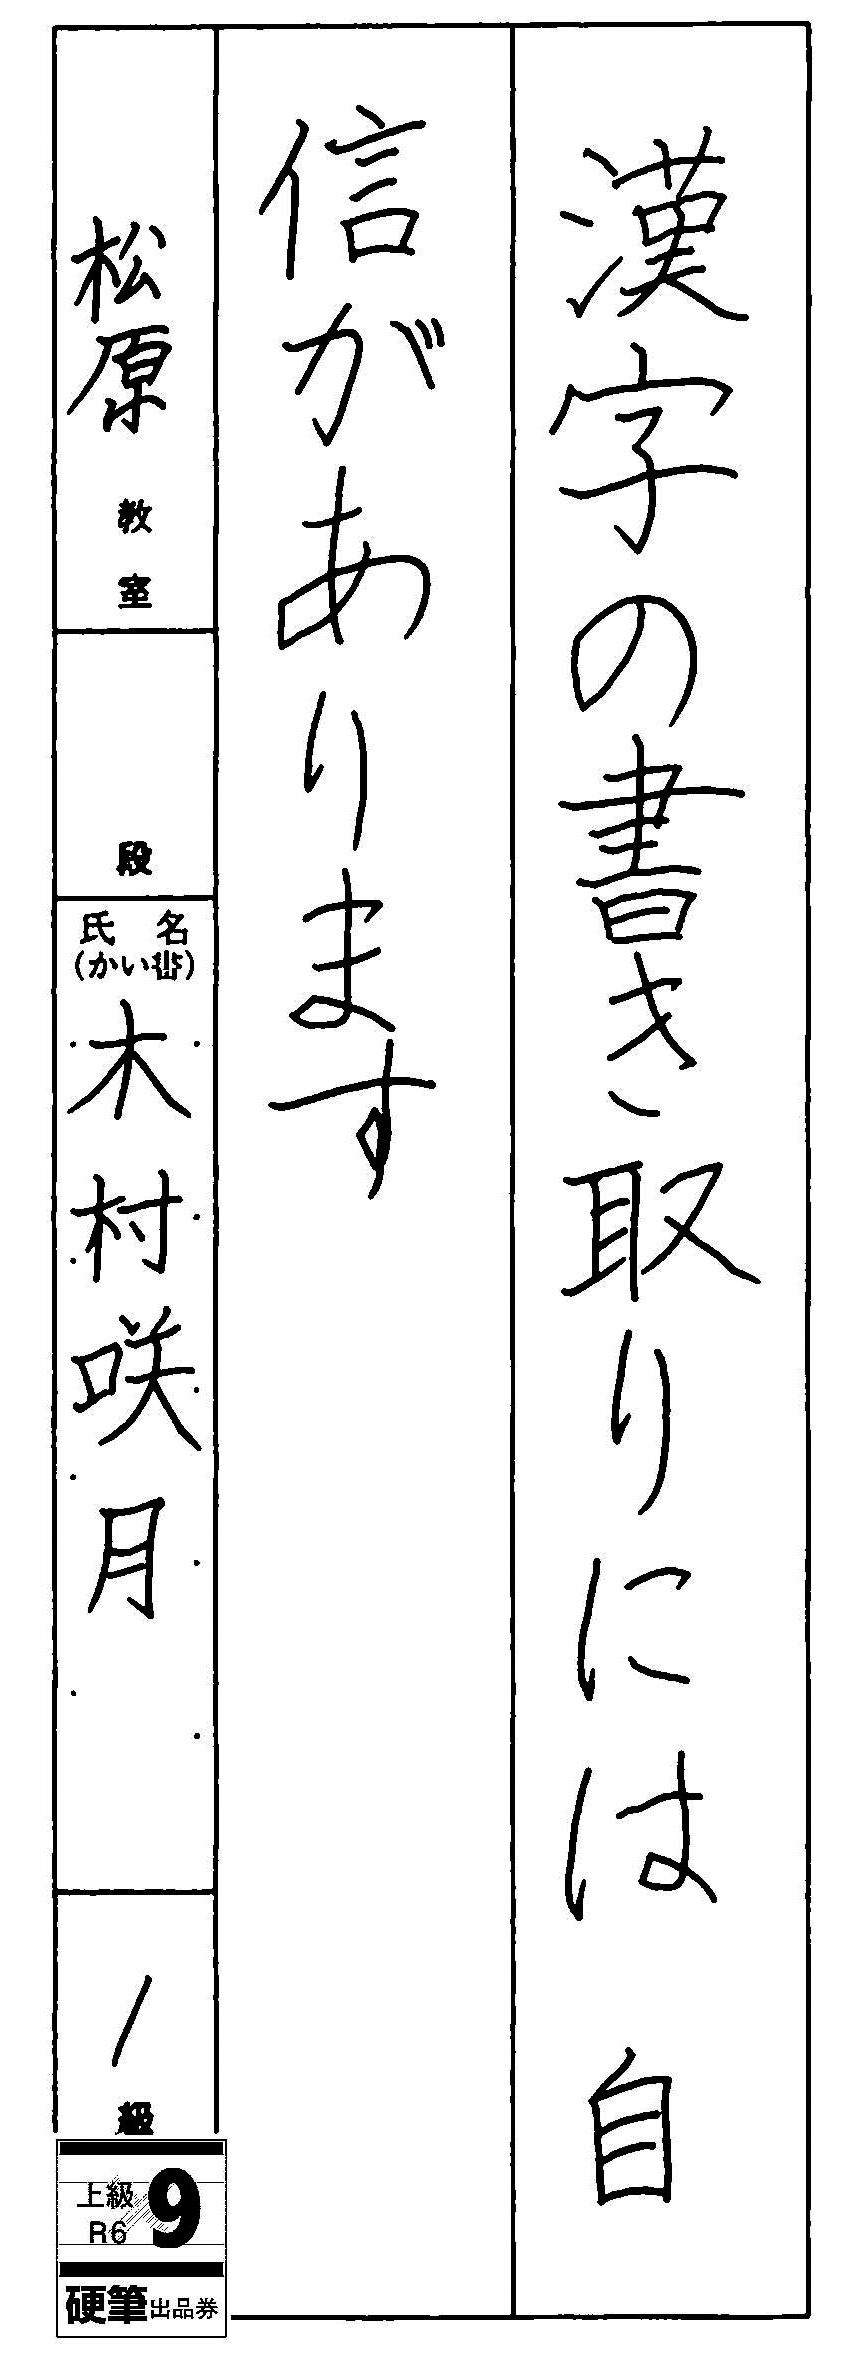 漢字の書き取りには自
信があります
松原教室
段
氏名
(かい書)
木村咲月
1級
上級
R6
9
硬筆出品券